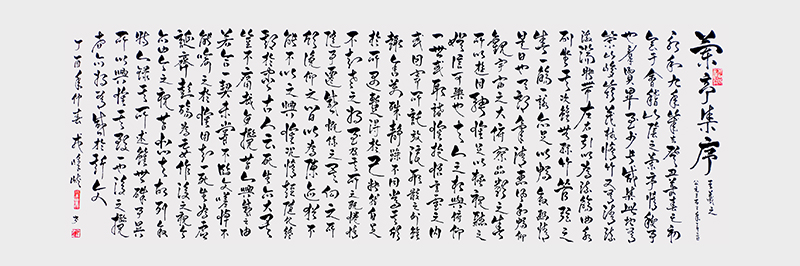 蘭亭集序
王羲之
永和九年歲在癸丑暮春之初
會于會稽山陰之蘭亭脩稧事
也羣賢畢至少長咸集此地有
崇山峻領茂林脩竹又有清流激
湍暎帶左右引以為流觴曲水
列坐其次雖無絲竹管弦之
盛一觴一詠亦足以暢敘幽情
是日也天朗氣清惠風和暢仰
觀宇宙之大俯察品類之盛
所以遊目騁懷足以極視聽之
娛信可樂也夫人之相與俯仰
一世或取諸懷抱悟言一室之內
或因寄所託放浪形骸之外雖
趣舍萬殊靜躁不同當其欣
於所遇蹔得於己快然自足
不知老之將至及其所之既惓情
隨事遷感慨係之矣向之所
欣俛仰之間以為陳迹猶不
能不以之興懷況脩短隨化終
期於盡古人云死生亦大矣
豈不痛哉每攬昔人興感之由
若合一契未嘗不臨文嗟悼不
能喻之於懷固知一死生為虛
誕齊彭殤為妄作後之視今
亦由今之視昔悲夫故列敘
時人錄其所述雖世殊事異
所以興懷其致一也後之攬
者亦將有感於斯文
丁酉年仲春